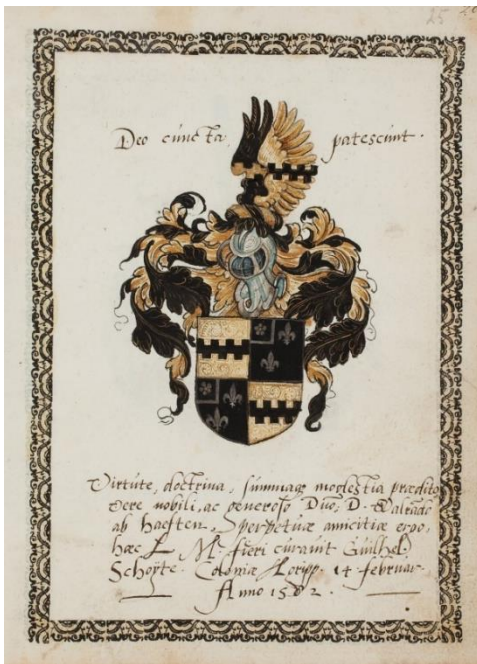 25
Deo cuncta patescunt.
Virtute, doctrina, summaqȝ modestia prædito
vere nobili, ac generoso Dno, D. Walrado
ab Haeften, perpetuæ amicitiæ ergo,
hæc L. M. fieri curavit Guilhel.
Schoÿte. Coloniæ Agripp. 14 februar.
Anno 1582.